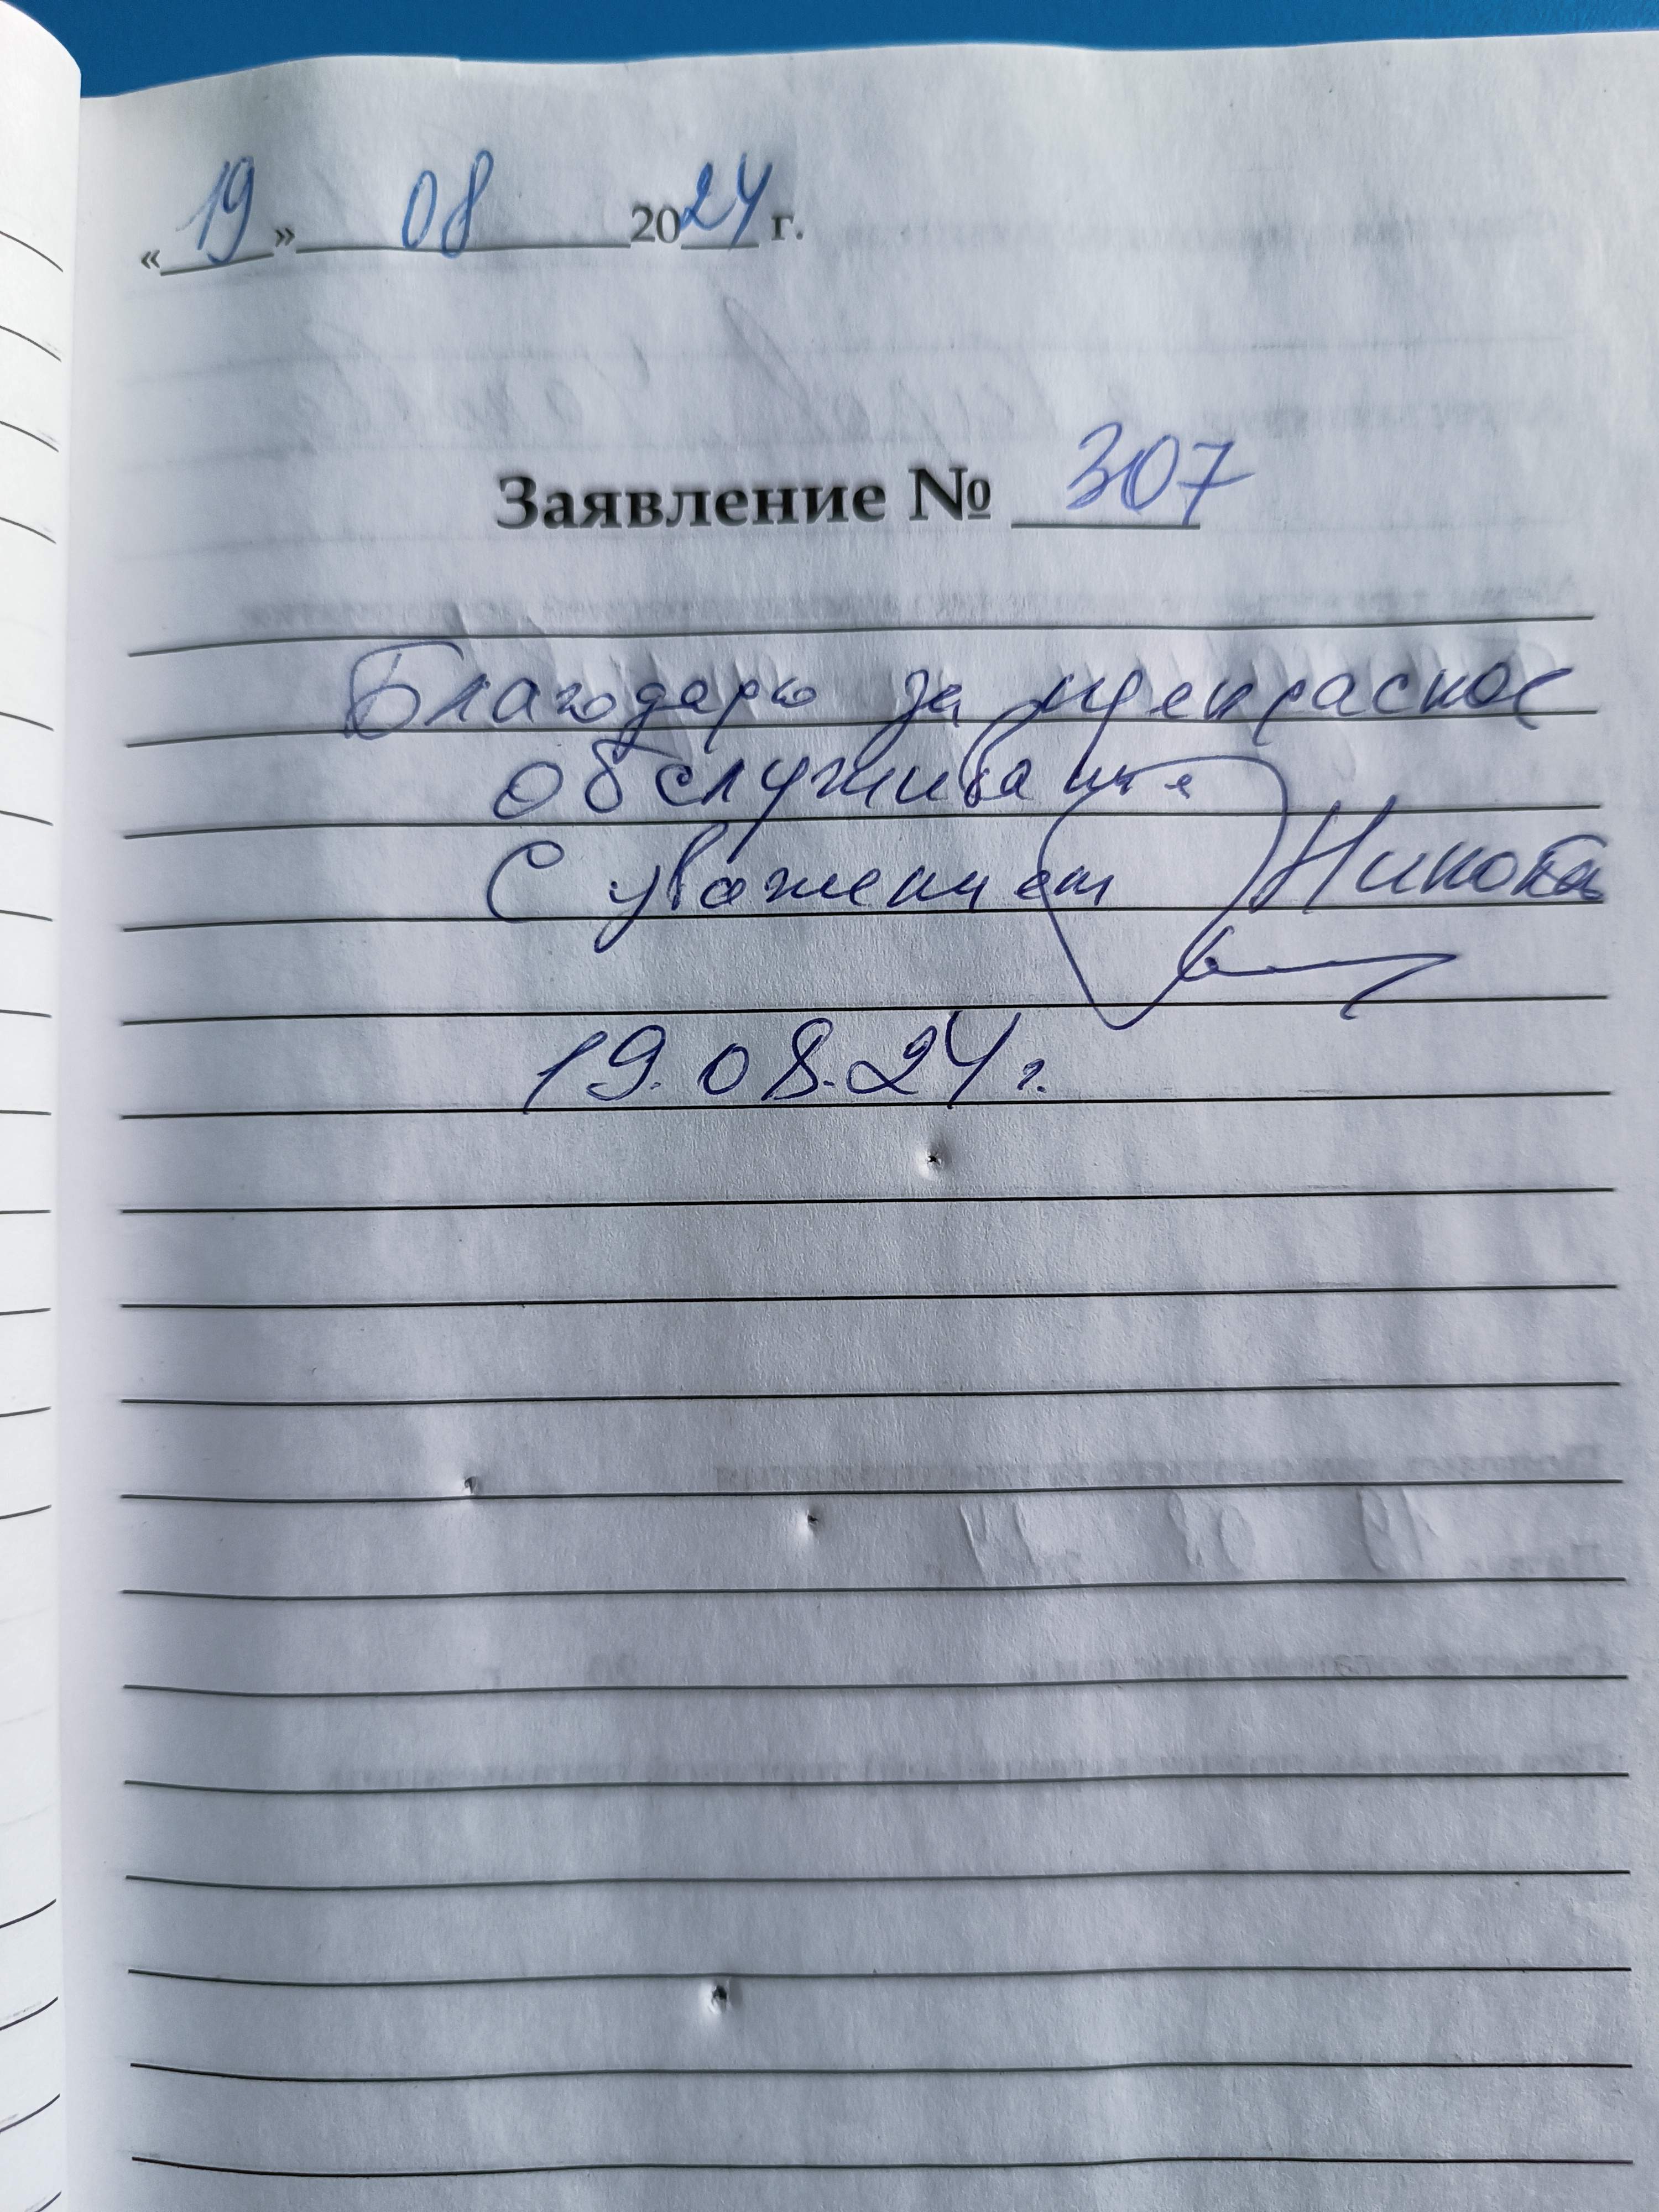 «19» 08 2024 г.
Заявление № 307
Благодарю за прекрасное
обслуживание
С уважением
19.08.24 г.